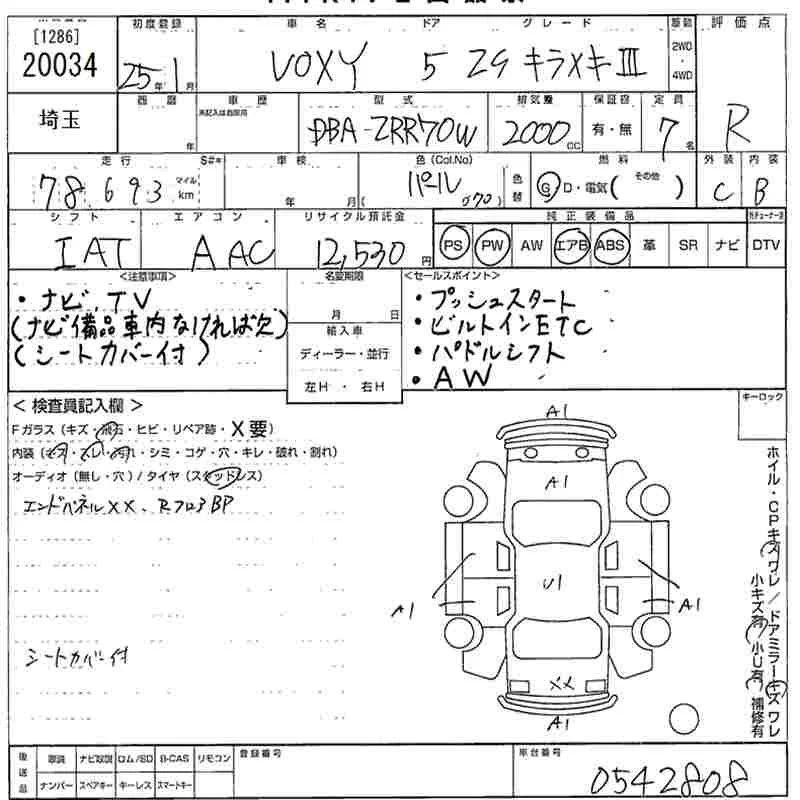 [1286]
20034
初度登録
車名
ドア
グレード
駆動
評価点
25年1月
VOXY
5
ZG キラメキⅢ
2WD
・
4WD
R
埼玉
年
車歴
未記入は自家用
型式
DBA-ZRR70W
排気量
2000cc
有・無
定員
7名
走行
S#*
78,693
マイル
km
車検
年 月
色(Col.No)
パール
(070)
色替
燃料
G D・電気(その他 )
外装
C
内装
B
シフト
IAT
エアコン
AAC
リサイクル預託金
12,530円
純正装備品
PS PW AW エアB ABS 革 SR ナビ DTV
<注意事項>
・ナビ、TV
(ナビ備品車内なければ欠)
(シートカバー付)
名変期限
月 日
輸入車
ディーラー・並行
左H ・ 右H
<セールスポイント>
・プッシュスタート
・ビルトインETC
・パドルシフト
・AW
<検査員記入欄>
Fガラス(キズ・飛石・ヒビ・リペア跡・X要)
内装(キズ・スレ・汚れ・シミ・コゲ・穴・キレ・破れ・割れ)
オーディオ(無し・穴)/タイヤ(スタッドレス)
エンドパネルXX、RフロアBP
シートカバー付
キーロック
A1
A1
U1
A1
A1
XX
A1
ホイル・CPキズワレ/ドアミラーキズワレ
小キズ有 小U有 補修有
後送品
取説 ナビ取説 ロム/SD B-CAS リモコン
ナンバー スペアキー キーレス スマートキー
登録番号
車台番号
0542808